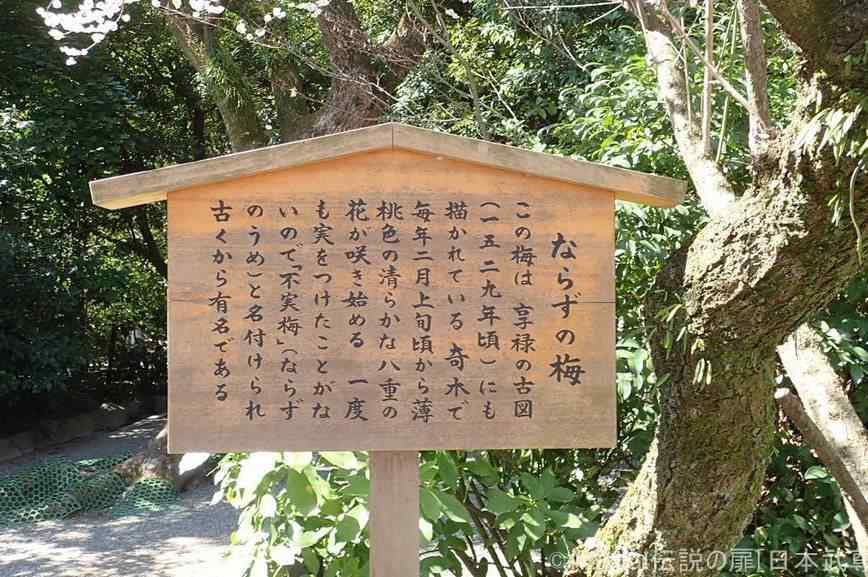 ならずの梅
この梅は 享禄の古図
(一五二九年頃)にも
描かれている 奇木で
毎年二月上旬頃から薄
桃色の清らかな八重の
花が咲き始める 一度
も実をつけたことがな
いので「不実梅」(ならず
のうめ)と名付けられ
古くから有名である
伝説の扉[日本武尊